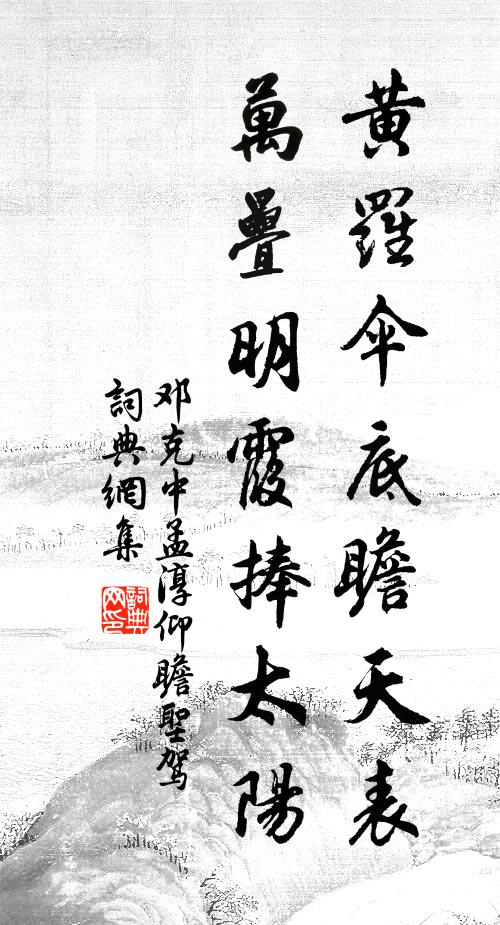 黃羅傘底瞻天表
萬疊明霞捧太陽
邓克中孟淳仰瞻聖駕
詞典網集
詞典
网印